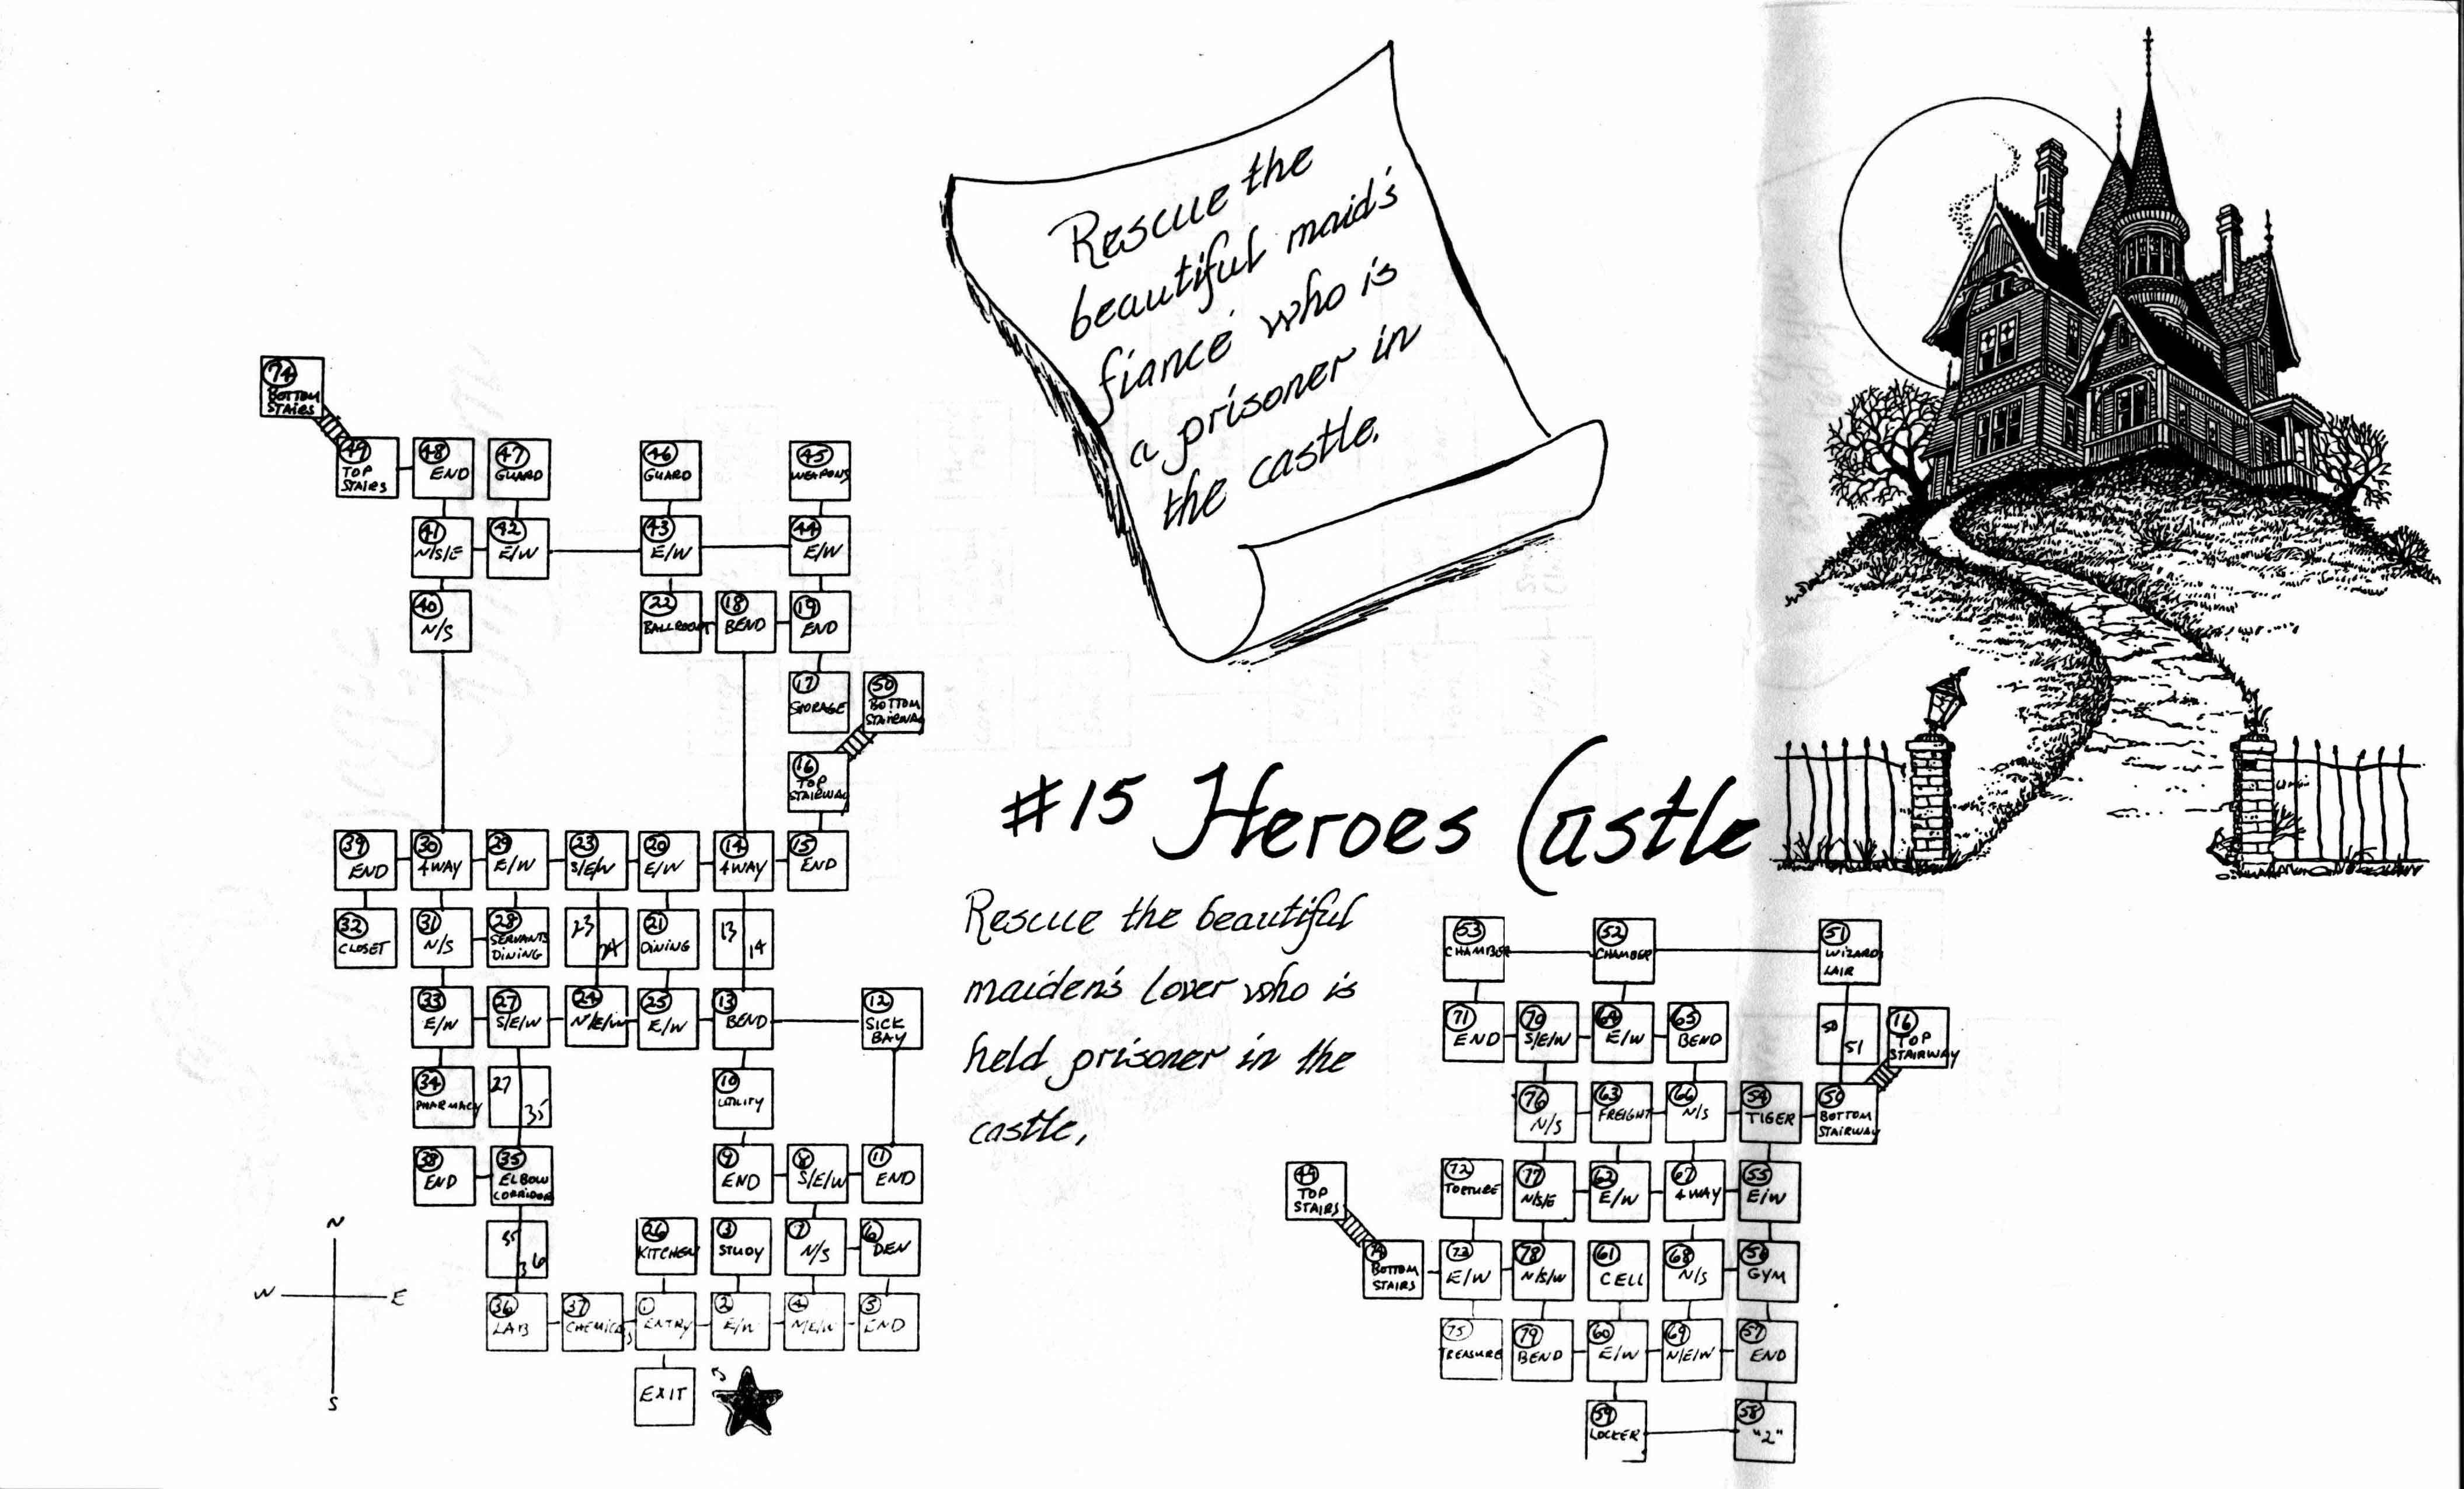 Rescue the
beautiful maid's
fiancé who is
a prisoner in
the castle.
#15 Heroes Castle
Rescue the beautiful
maiden's lover who is
held prisoner in the
castle,
74 BOTTOM STAIRS
49 TOP STAIRS
48 END
47 GUARD
46 GUARD
45 WEAPONS
41 N/S/E
42 E/W
43 E/W
44 E/W
40 N/S
22 BALLROOM
18 BEND
19 END
17 STORAGE
50 BOTTOM STAIRWAY
16 TOP STAIRWAY
39 END
30 4WAY
29 E/W
23 S/E/W
20 E/W
14 4WAY
15 END
32 CLOSET
31 N/S
28 SERVANTS DINING
23 24
21 DINING
13 14
33 E/W
27 S/E/W
24 N/E/W
25 E/W
13 BEND
12 SICK BAY
34 PHARMACY
27 35
10 UTILITY
38 END
35 ELBOW CORRIDOR
9 END
8 S/E/W
11 END
35 36
26 KITCHEN
3 STUDY
7 N/S
6 DEN
36 LAB
37 CHEMICALS
1 ENTRY
2 E/W
4 N/E/W
5 END
EXIT
N
W E
S
53 CHAMBER
52 CHAMBER
51 WIZARDS LAIR
71 END
70 S/E/W
64 E/W
65 BEND
50 51
16 TOP STAIRWAY
76 N/S
63 FREIGHT
66 N/S
54 TIGER
50 BOTTOM STAIRWAY
49 TOP STAIRS
72 TORTURE
77 N/S/E
62 E/W
67 4WAY
55 E/W
74 BOTTOM STAIRS
73 E/W
78 N/S/W
61 CELL
68 N/S
56 GYM
75 TREASURE
79 BEND
60 E/W
69 N/E/W
57 END
59 LOCKER
58 "2"